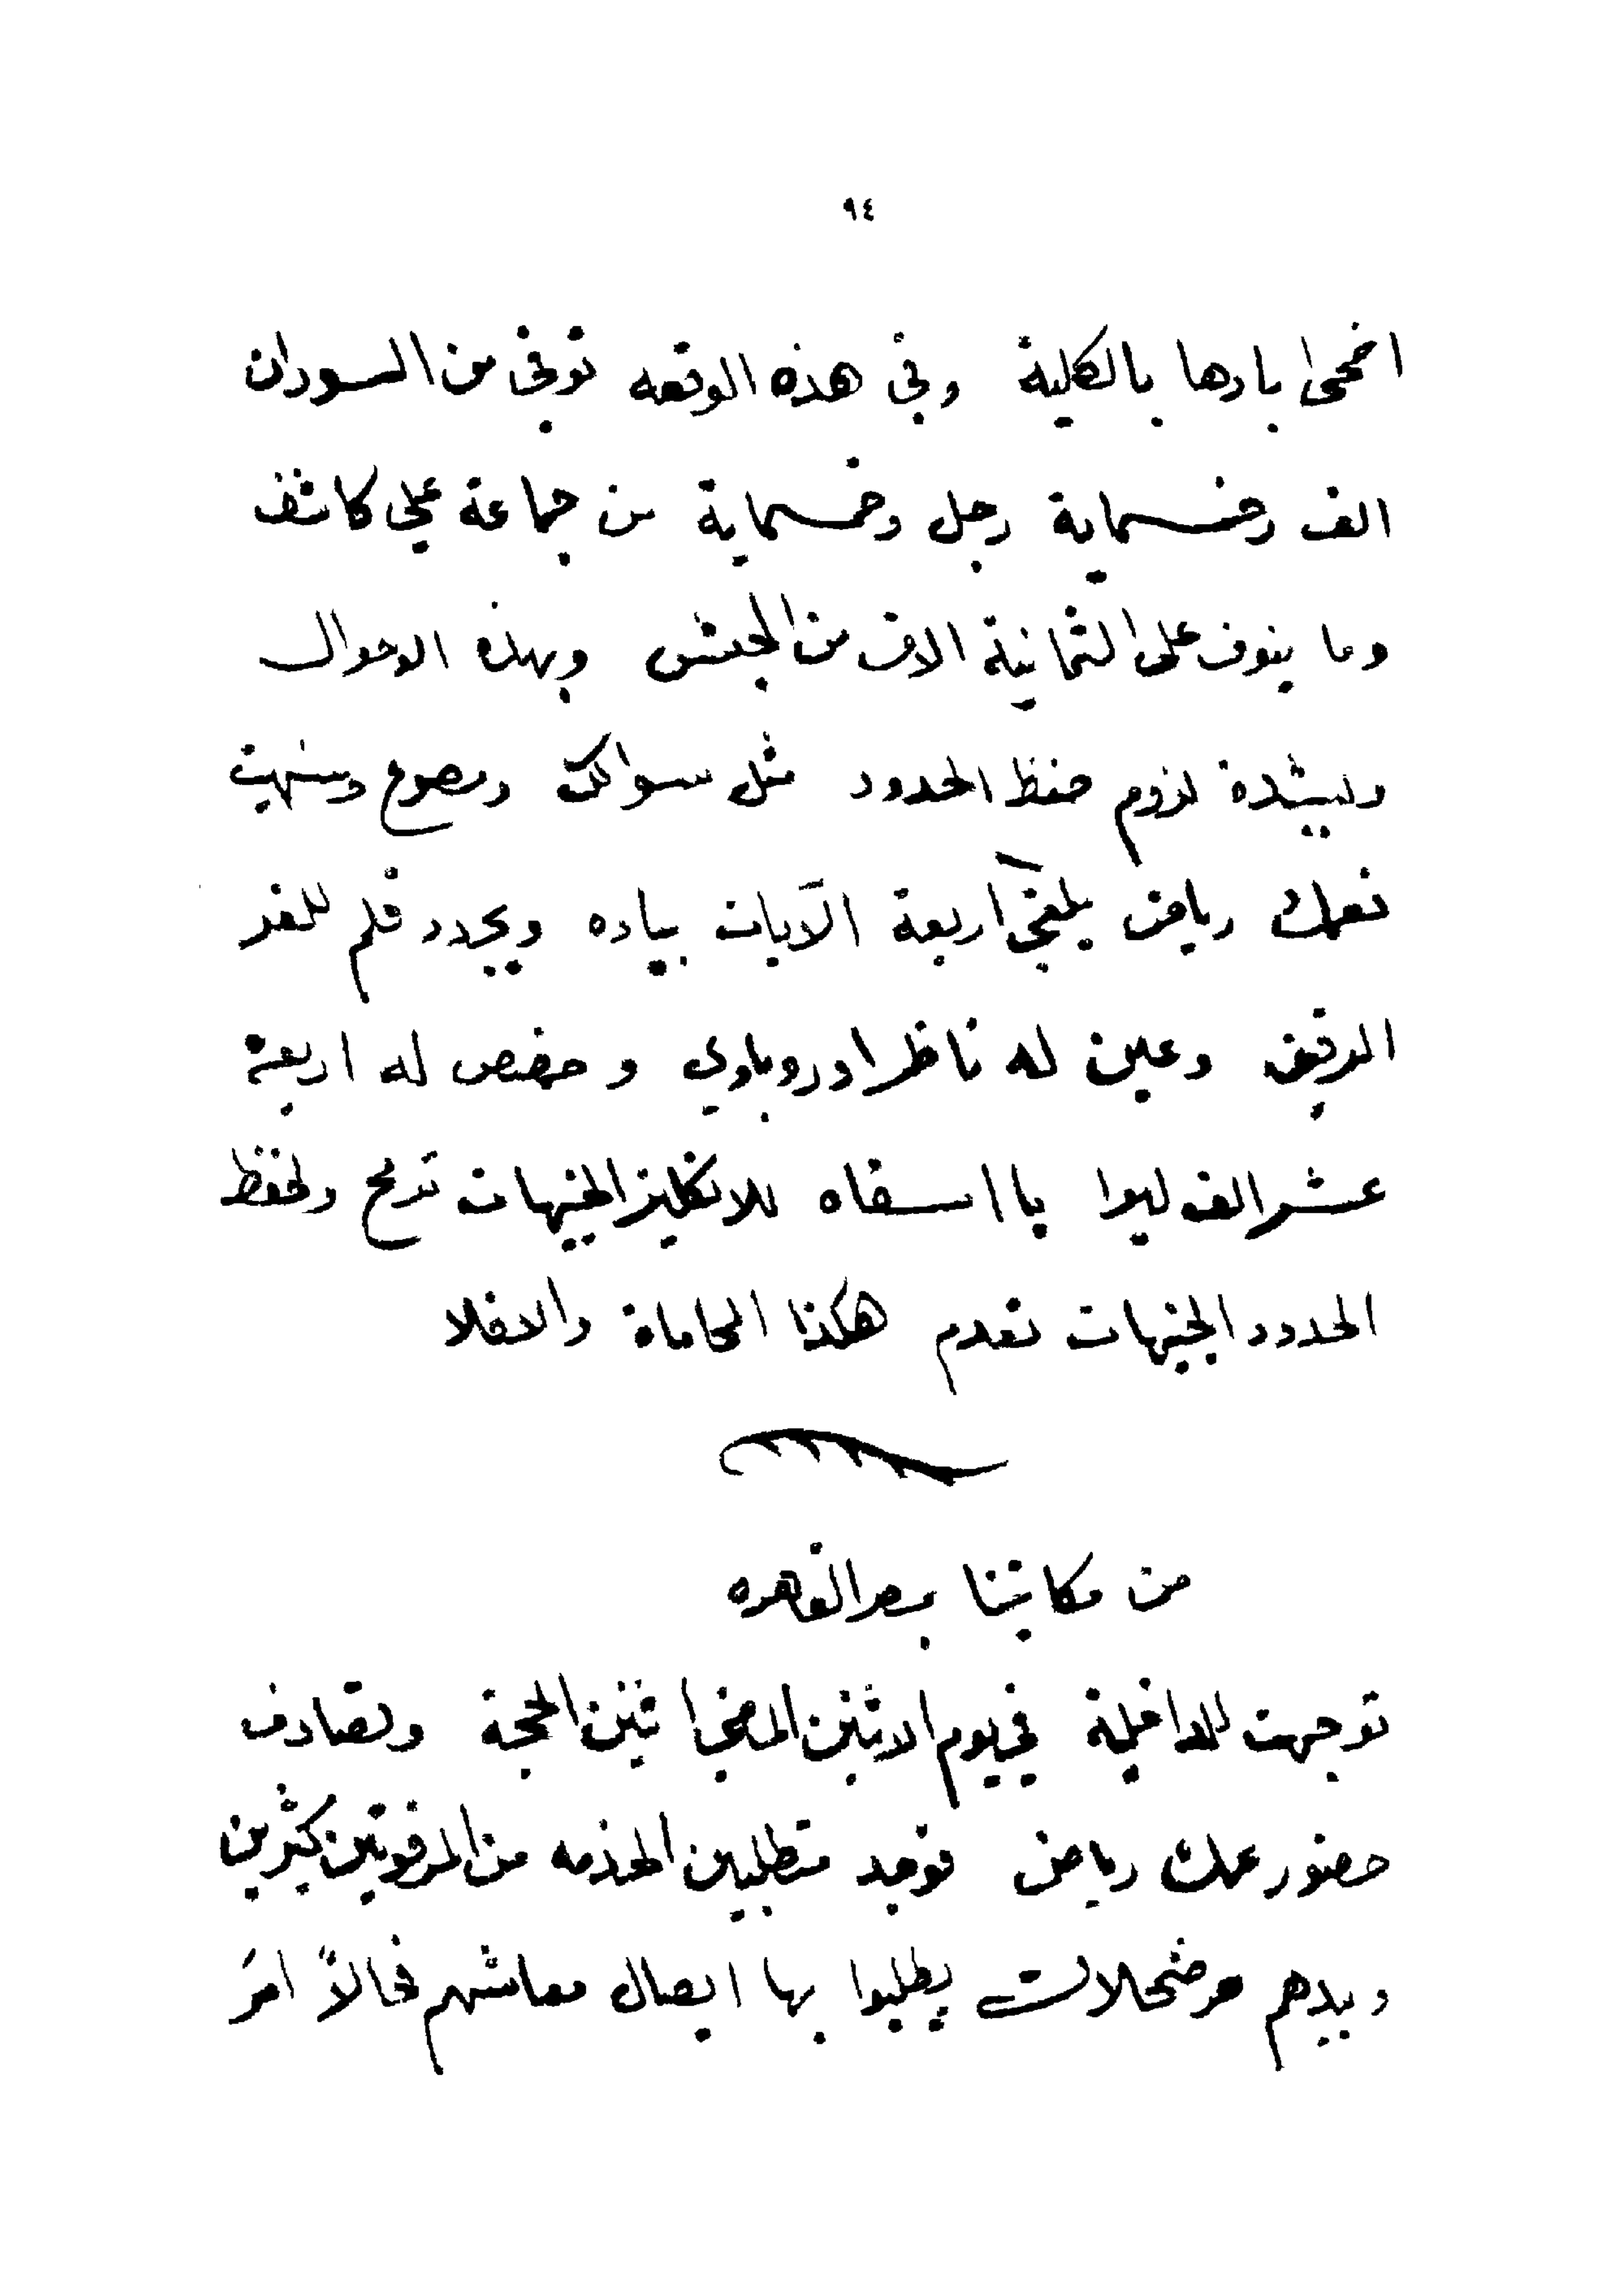 ٩٤
اضحى ابادها بالكلية وفي هذه الوقعه توفى من السودان
الف وخمسماية رجل وخمسماية من جماعة علي كاشف
وما ينوف على الثمانية الاف من الجيش وبهذه الاحوال
ولشدة لزوم حفظ الحدود مثل سواكن ومصوع وسنهيت
فعمك رياض يلغي اربعة الآيات بياده ويجدد قلم للغير
الرقيق وعين له ناظر اوروباوي وخصص له اربعة
عشر الف ليرا يا اسفاه للانكليز الجنيهات تربح ولحفظ
الحدود الجنيهات تعدم هكذا المحاماة والا فلا
من مكاتبنا بمصر القاهره
توجهت للداخلية في يوم الاثنين الماضي ٢ ثنين الحجة وتصادف
حضور عمك رياض فوجد متطلبين الخدمه من المرفوتين كثيرين
وبيدهم عرضحالات يطلبوا بها ايصال معاشهم فحالاً امر